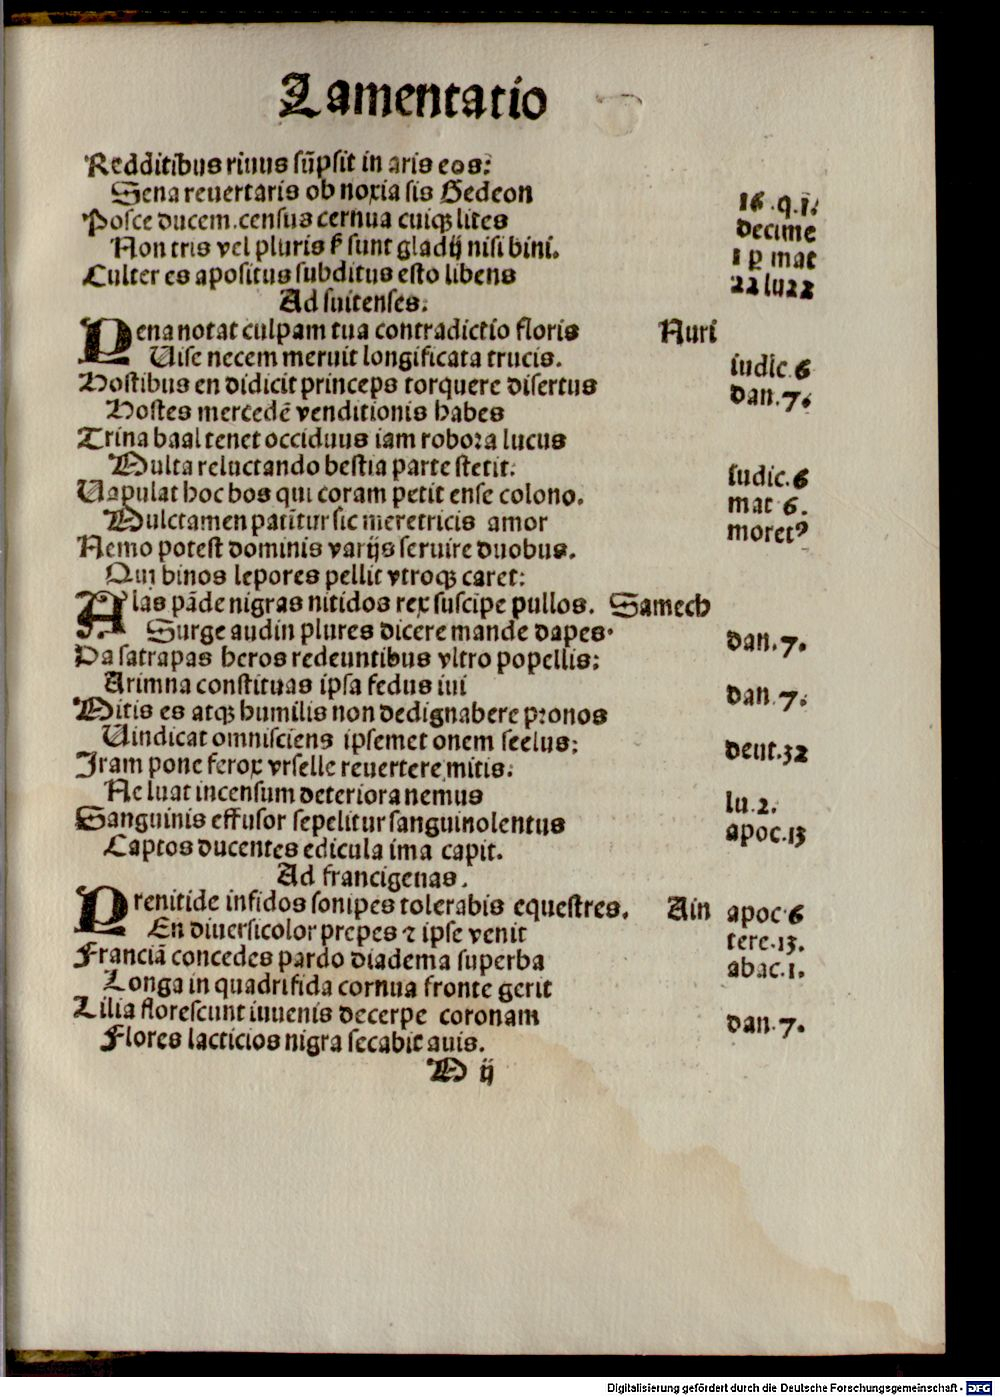 Lamentatio
Redditibus riuus sūpsit in aris eos:
Sena reuertaris ob noxia sis Gedeon
16 .q.ī.
Posce ducem.census cernua cuiqꝫ lites
decime
Non tris vel pluris sunt gladij nisi bini.
1 p mat
Culter es apositus subditus esto libens
22 lu22
Ad suitenses.
Pena notat culpam tua contradictio floris Nun
Uise necem meruit longificata trucis.
iudic.6
Hostibus en didicit princeps torquere disertus
dan.7.
Hostes mercedē venditionis habes
Trina baal tenet occiduus iam robora lucus
Multa reluctando bestia parte stetit.
iudic.6
Uapulat hoc bos qui coram petit ense colono.
mat 6.
Mulctamen patīturꝰ sic meretricis amor
moretꝰ
Nemo potest dominis varijs seruire duobus.
Qui binos lepores pellit vtroqꝫ caret:
Alas pāde nigras nitidos rex suscipe pullos. Samech
Surge audin plures dicere mande dapes.
dan.7.
Da satrapas heros redeuntibus vltro popellis:
Arimna constituas ipsa fedus iui
dan.7.
Mitis es atqꝫ humilis non dedignabere pronos
Uindicat omnisciens ipsemet onem seelus:
deut.32
Iram pone ferox vrselle reuertere mitis.
Ne luat incensum deteriora nemus
lu.2.
Sanguinis effusor sepelitur sanguinolentus
apoc.13
Captos ducentes edicula ima capit.
Ad francigenas.
Prenitide infidos sonipes tolerabis equestres. Ain apoc 6
En diuersicolor prepes ⁊ ipse venit
tere.13.
Franciā concedes pardo diadema superba
abac.1.
Longa in quadrifida cornua fronte gerit
Lilia florescunt iuuenis decerpe coronam
dan.7.
Flores lacticios nigra secabit auis.
M ij
Digitalisierung gefördert durch die Deutsche Forschungsgemeinschaft - DFG